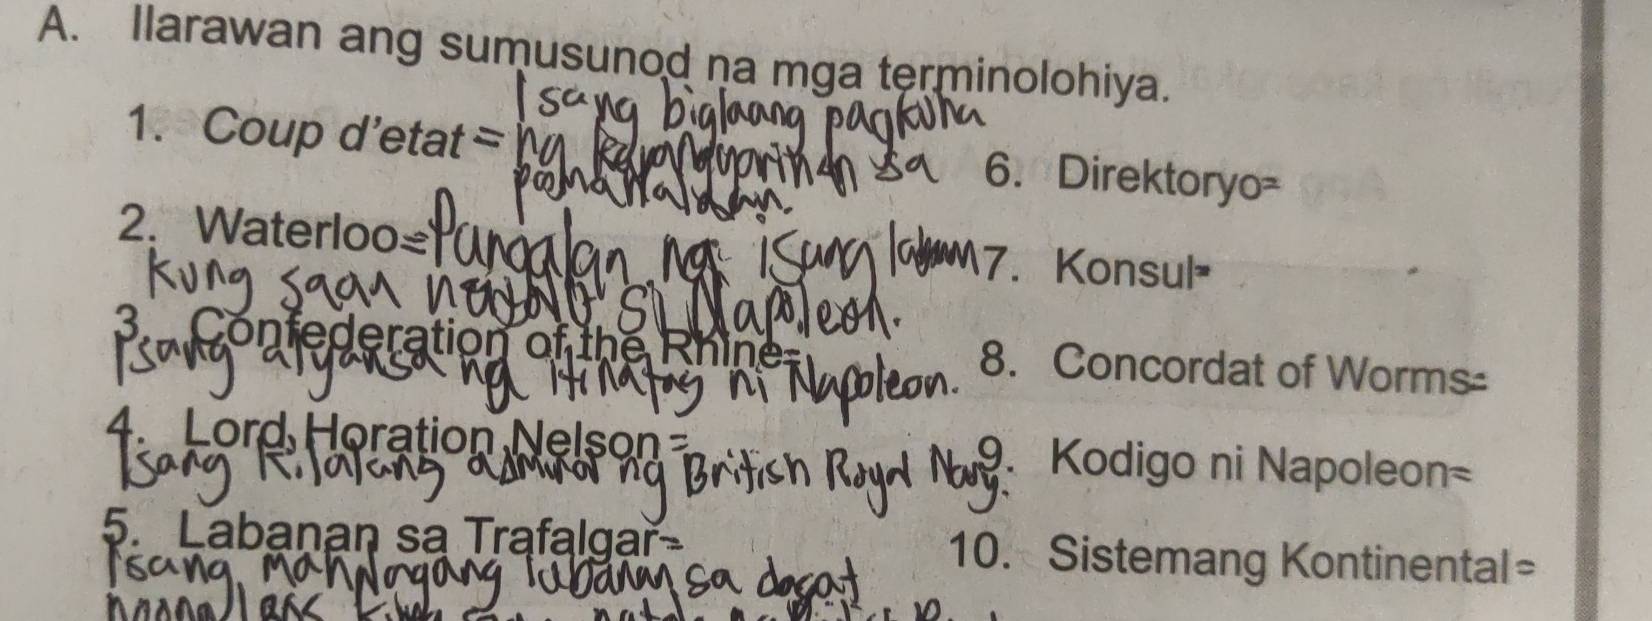 A. Ilarawan ang sumusunod na mga terminolohiya.
Isang biglaang pagkuha
1. Coup d'etat = ng kapangyarihan sa
pamahalaan.
2. Waterloo= Pangalan ng isang laban
kung saan natalo si Napoleon.
3. Confederation of the Rhine=
Isang alyansa na itinatag ni Napoleon.
4. Lord Horation Nelson =
Isang kilalang admiral ng British Royal Navy.
5. Labanan sa Trafalgar=
Isang mahalagang labanan sa dagat
6. Direktoryo=
7. Konsul=
8. Concordat of Worms=
9. Kodigo ni Napoleon=
10. Sistemang Kontinental=